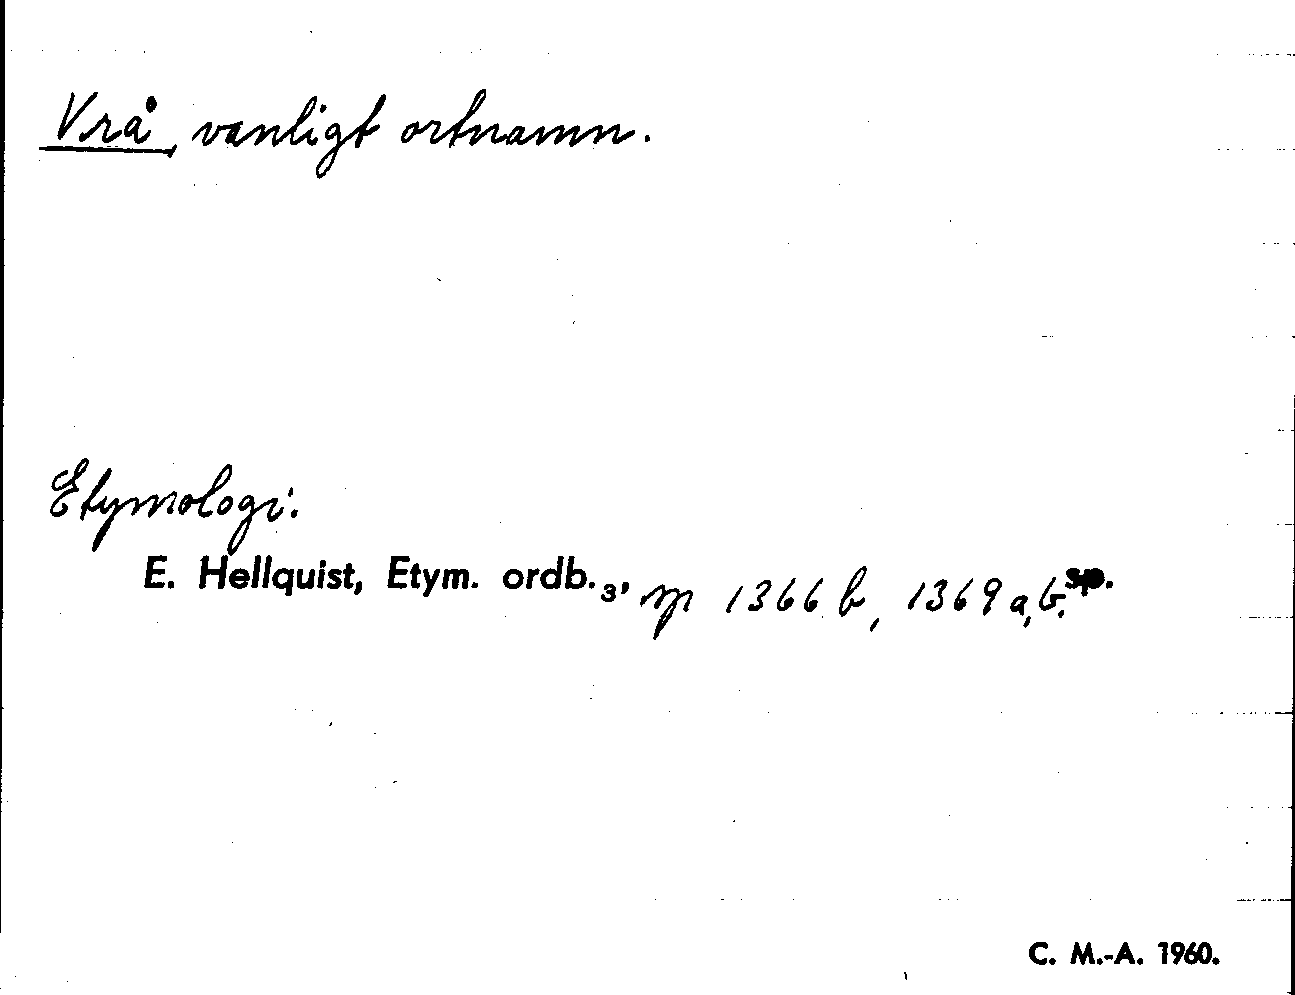 Vrå, vanligt ortnamn.
Etymologi:
E. Hellquist, Etym. ordb.₃, sp 1366 b, 1369 a, b. sp.
C. M.-A. 1960.